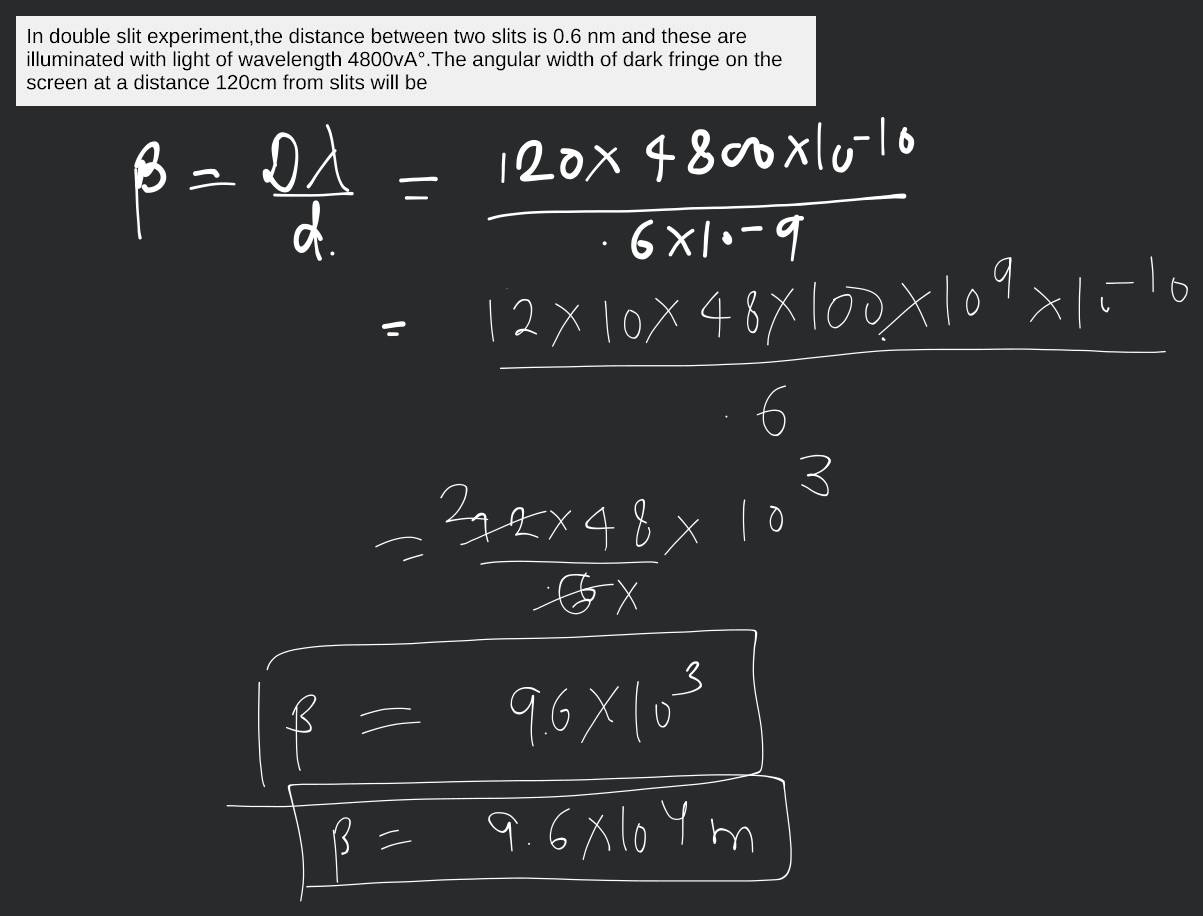 In double slit experiment,the distance between two slits is 0.6 nm and these are
illuminated with light of wavelength 4800vA°.The angular width of dark fringe on the
screen at a distance 120cm from slits will be
β = Dλ/d. = 120 × 4800 × 10⁻¹⁰ / .6 × 10⁻⁹
= 12 × 10 × 48 × 100 × 10⁹ × 10⁻¹⁰ / .6
= 2 12 × 48 × 10³ / .6 ×
β = 96 × 10³
β = 9.6 × 10⁴ m